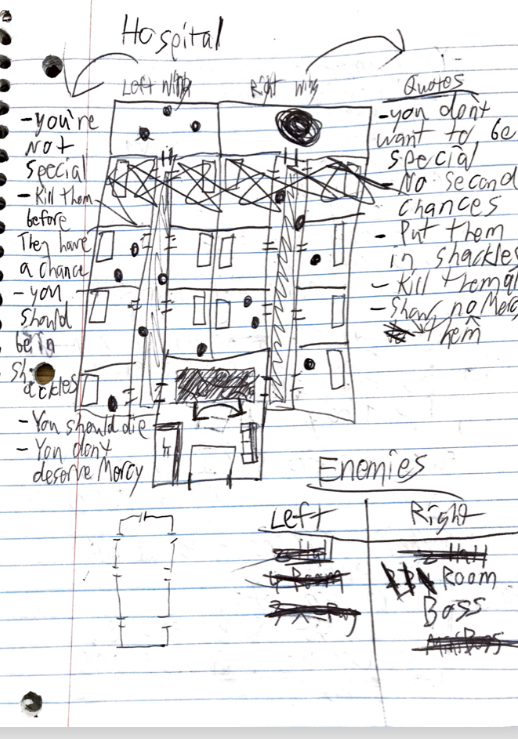 Hospital
Left Wing
Right Wing
Quotes
-you're
not
special
- Kill them
before
They have
a chance
- you
should
be in
shackles
- You should die
- You don't
deserve Mercy
-you don't
want to be
special
- No second
chances
- Put them
in shackles
- Kill them all
- Show no Mercy
them
Enemies
Left
Right
Room
Boss